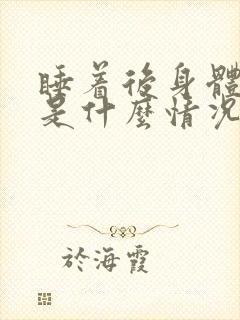 睡着後身體
是什麼情況
於海霞